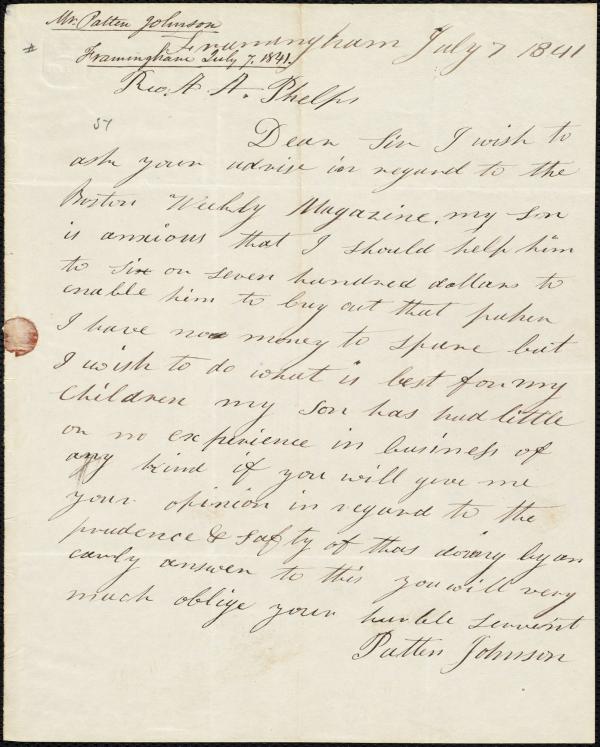 Mr. Patten Johnson
Framingham July 7 1841
#
Framingham July 7. 1841.
Rev. A. A. Phelps
51
Dear Sir I wish to
ask your advise in regard to the
Boston Weekly Magazine. my son
is anxious that I should help him
to six or seven hundred dollars to
enable him to buy out that paper
I have no money to spare but
I wish to do what is best for my
Children my son has had little
or no experience in business of
any kind if you will give me
your opinion in regard to the
prudence & safty of thus doing by an
early answer to this you will very
much oblige your humble servent
Patten Johnson